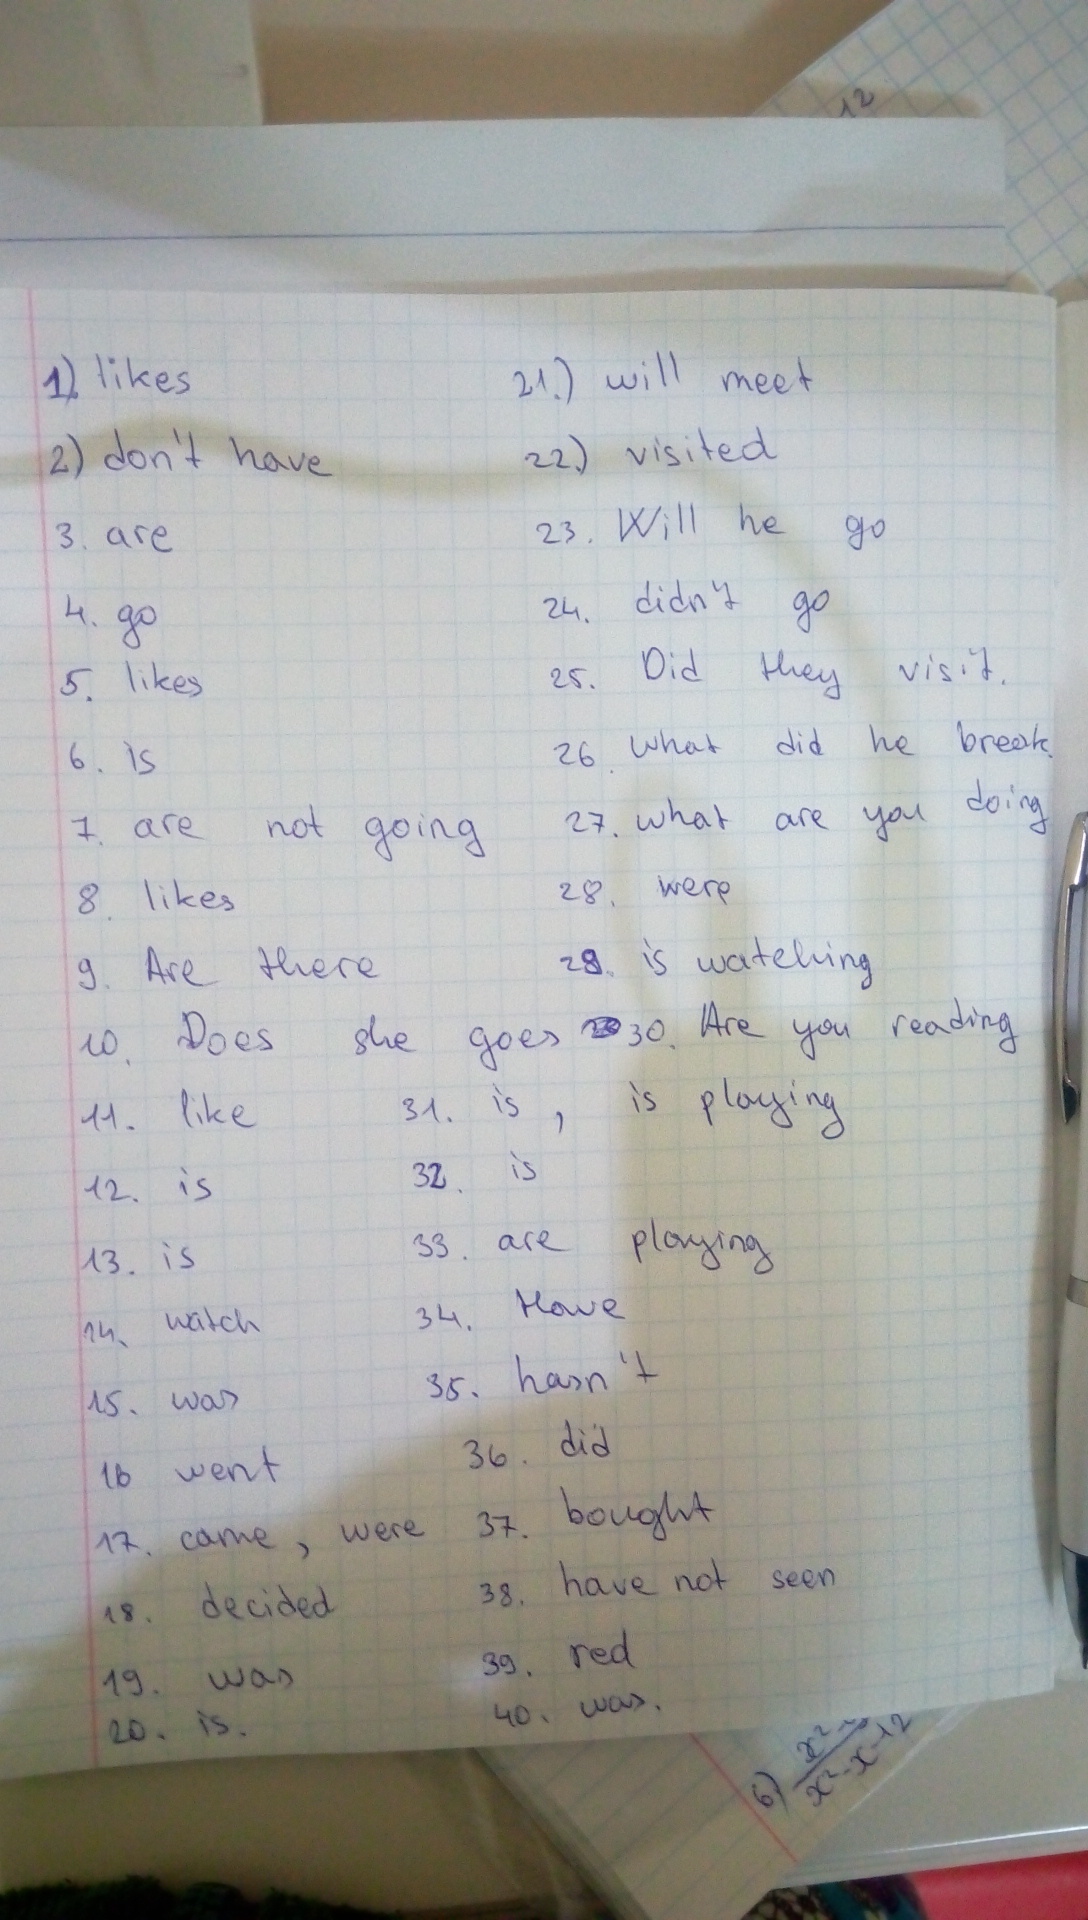 12
1) likes
2) don't have
3. are
4. go
5. likes
6. is
7. are not going
8. likes
9. Are there
10. Does she goes
11. like
12. is
13. is
14. watch
15. was
16 went
17. came, were
18. decided
19. was
20. is.
21.) will meet
22.) visited
23. Will he go
24. didn't go
25. Did they visit.
26. what did he break.
27. what are you doing
28. were
29. is watching
30. Are you reading
31. is, is playing
32. is
33. are playing
34. Have
35. hasn't
36. did
37. bought
38. have not seen
39. red
40. was.
6)
x²-x-12